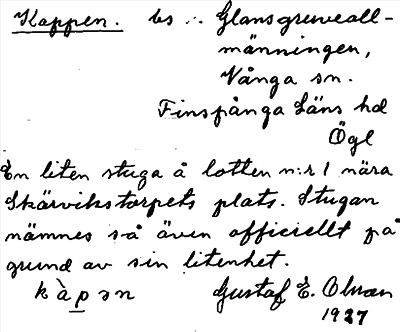 Kappen. bs ∴ Glansgruveall-
männingen,
Vånga sn.
Finspånga Läns hd
Ögl
En liten stuga å lotten n:r 1 nära
Skärvikstorpets plats. Stugan
nämnes så även officiellt på
grund av sin litenhet.
kàpən Gustaf E. Olsson
1927